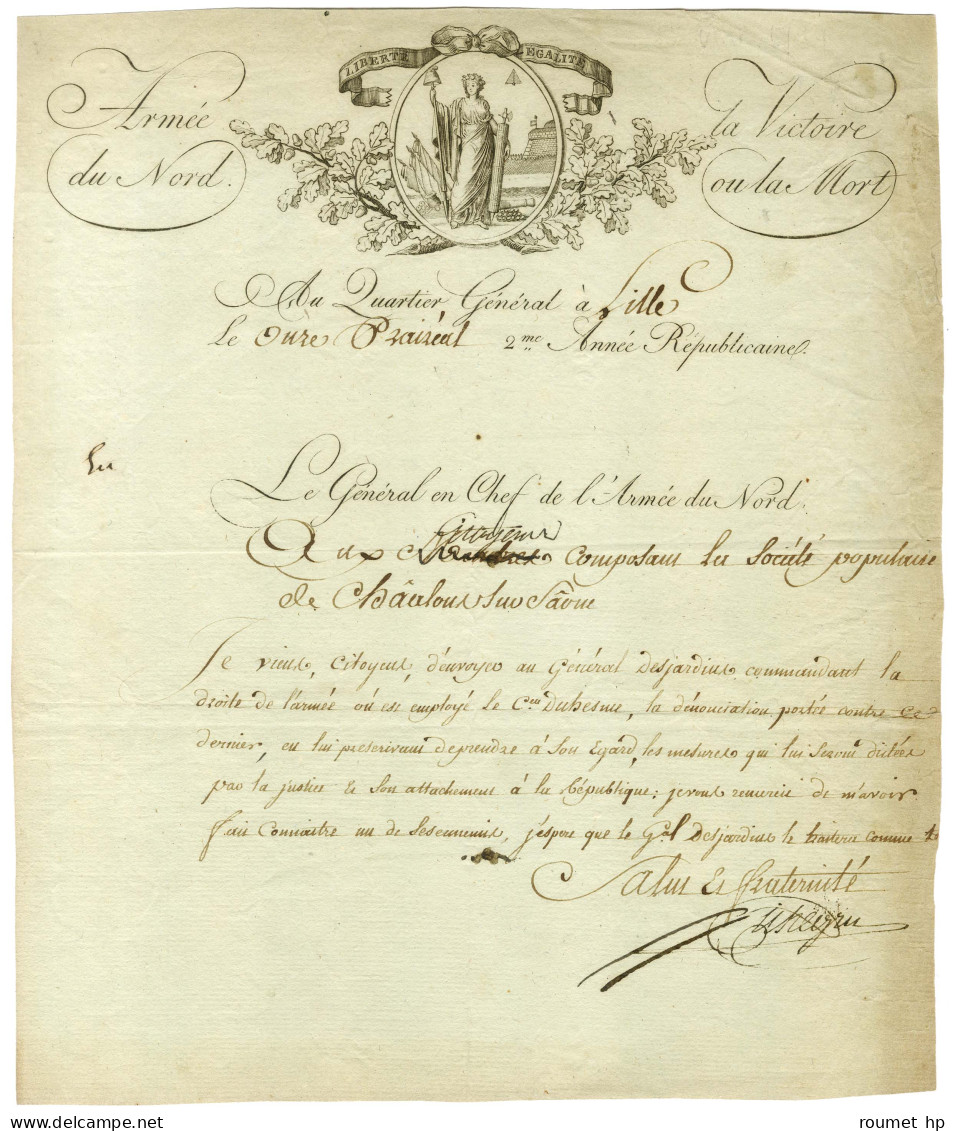 LIBERTÉ EGALITÉ
Armée
du Nord.
la Victoire
ou la Mort
Au Quartier Général à Lille
Le Onze Prairéal 2.me Année Républicaine.
Le Général en Chef de l'Armée du Nord.
Citoyens
Aux composant la Société populaire
de Châlons sur Sâone
Je viens, Citoyens, d'envoyer au Général Desjardins commandant la
droite de l'armée où est employé le C.en Duhesme, la dénonciation portée contre ce
dernier, en lui prescrivant de prendre à son Egard, les mesures qui lui seront dictées
par la justice et son attachement à la République; je vous remercie de m'avoir
fait connaitre un de ses ennemis, j'espere que le G.al Desjardins le traitera comme
Salut et fraternité
Pichegru
roumet hp